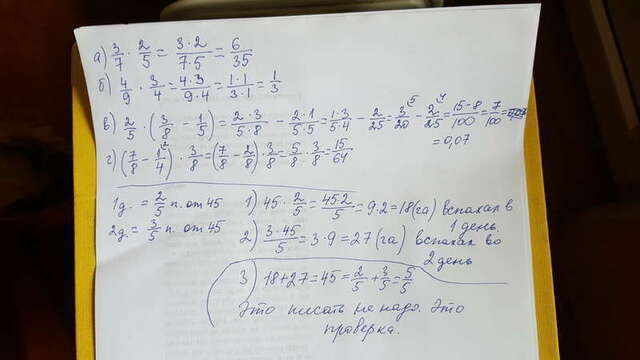 а) 3/7 · 2/5 = 3·2/7·5 = 6/35
б) 4/9 · 3/4 = 4·3/9·4 = 1·1/3·1 = 1/3
в) 2/5 · (3/8 - 1/5) = 2·3/5·8 - 2·1/5·5 = 1·3/5·4 - 2/25 = 3/20 - 2/25 = 15-8/100 = 7/100 = 0,07
г) (7/8 - 1/4) · 3/8 = (7/8 - 2/8) · 3/8 = 5/8 · 3/8 = 15/64
1д. = 2/5 п. от 45
2д. = 3/5 п. от 45
1) 45 · 2/5 = 45·2/5 = 9·2 = 18 (га) вспахал в 1 день.
2) 3·45/5 = 3·9 = 27 (га) вспахал во 2 день
(3) 18+27=45 2/5 + 3/5 = 5/5
Это писать не надо. Это
проверка.